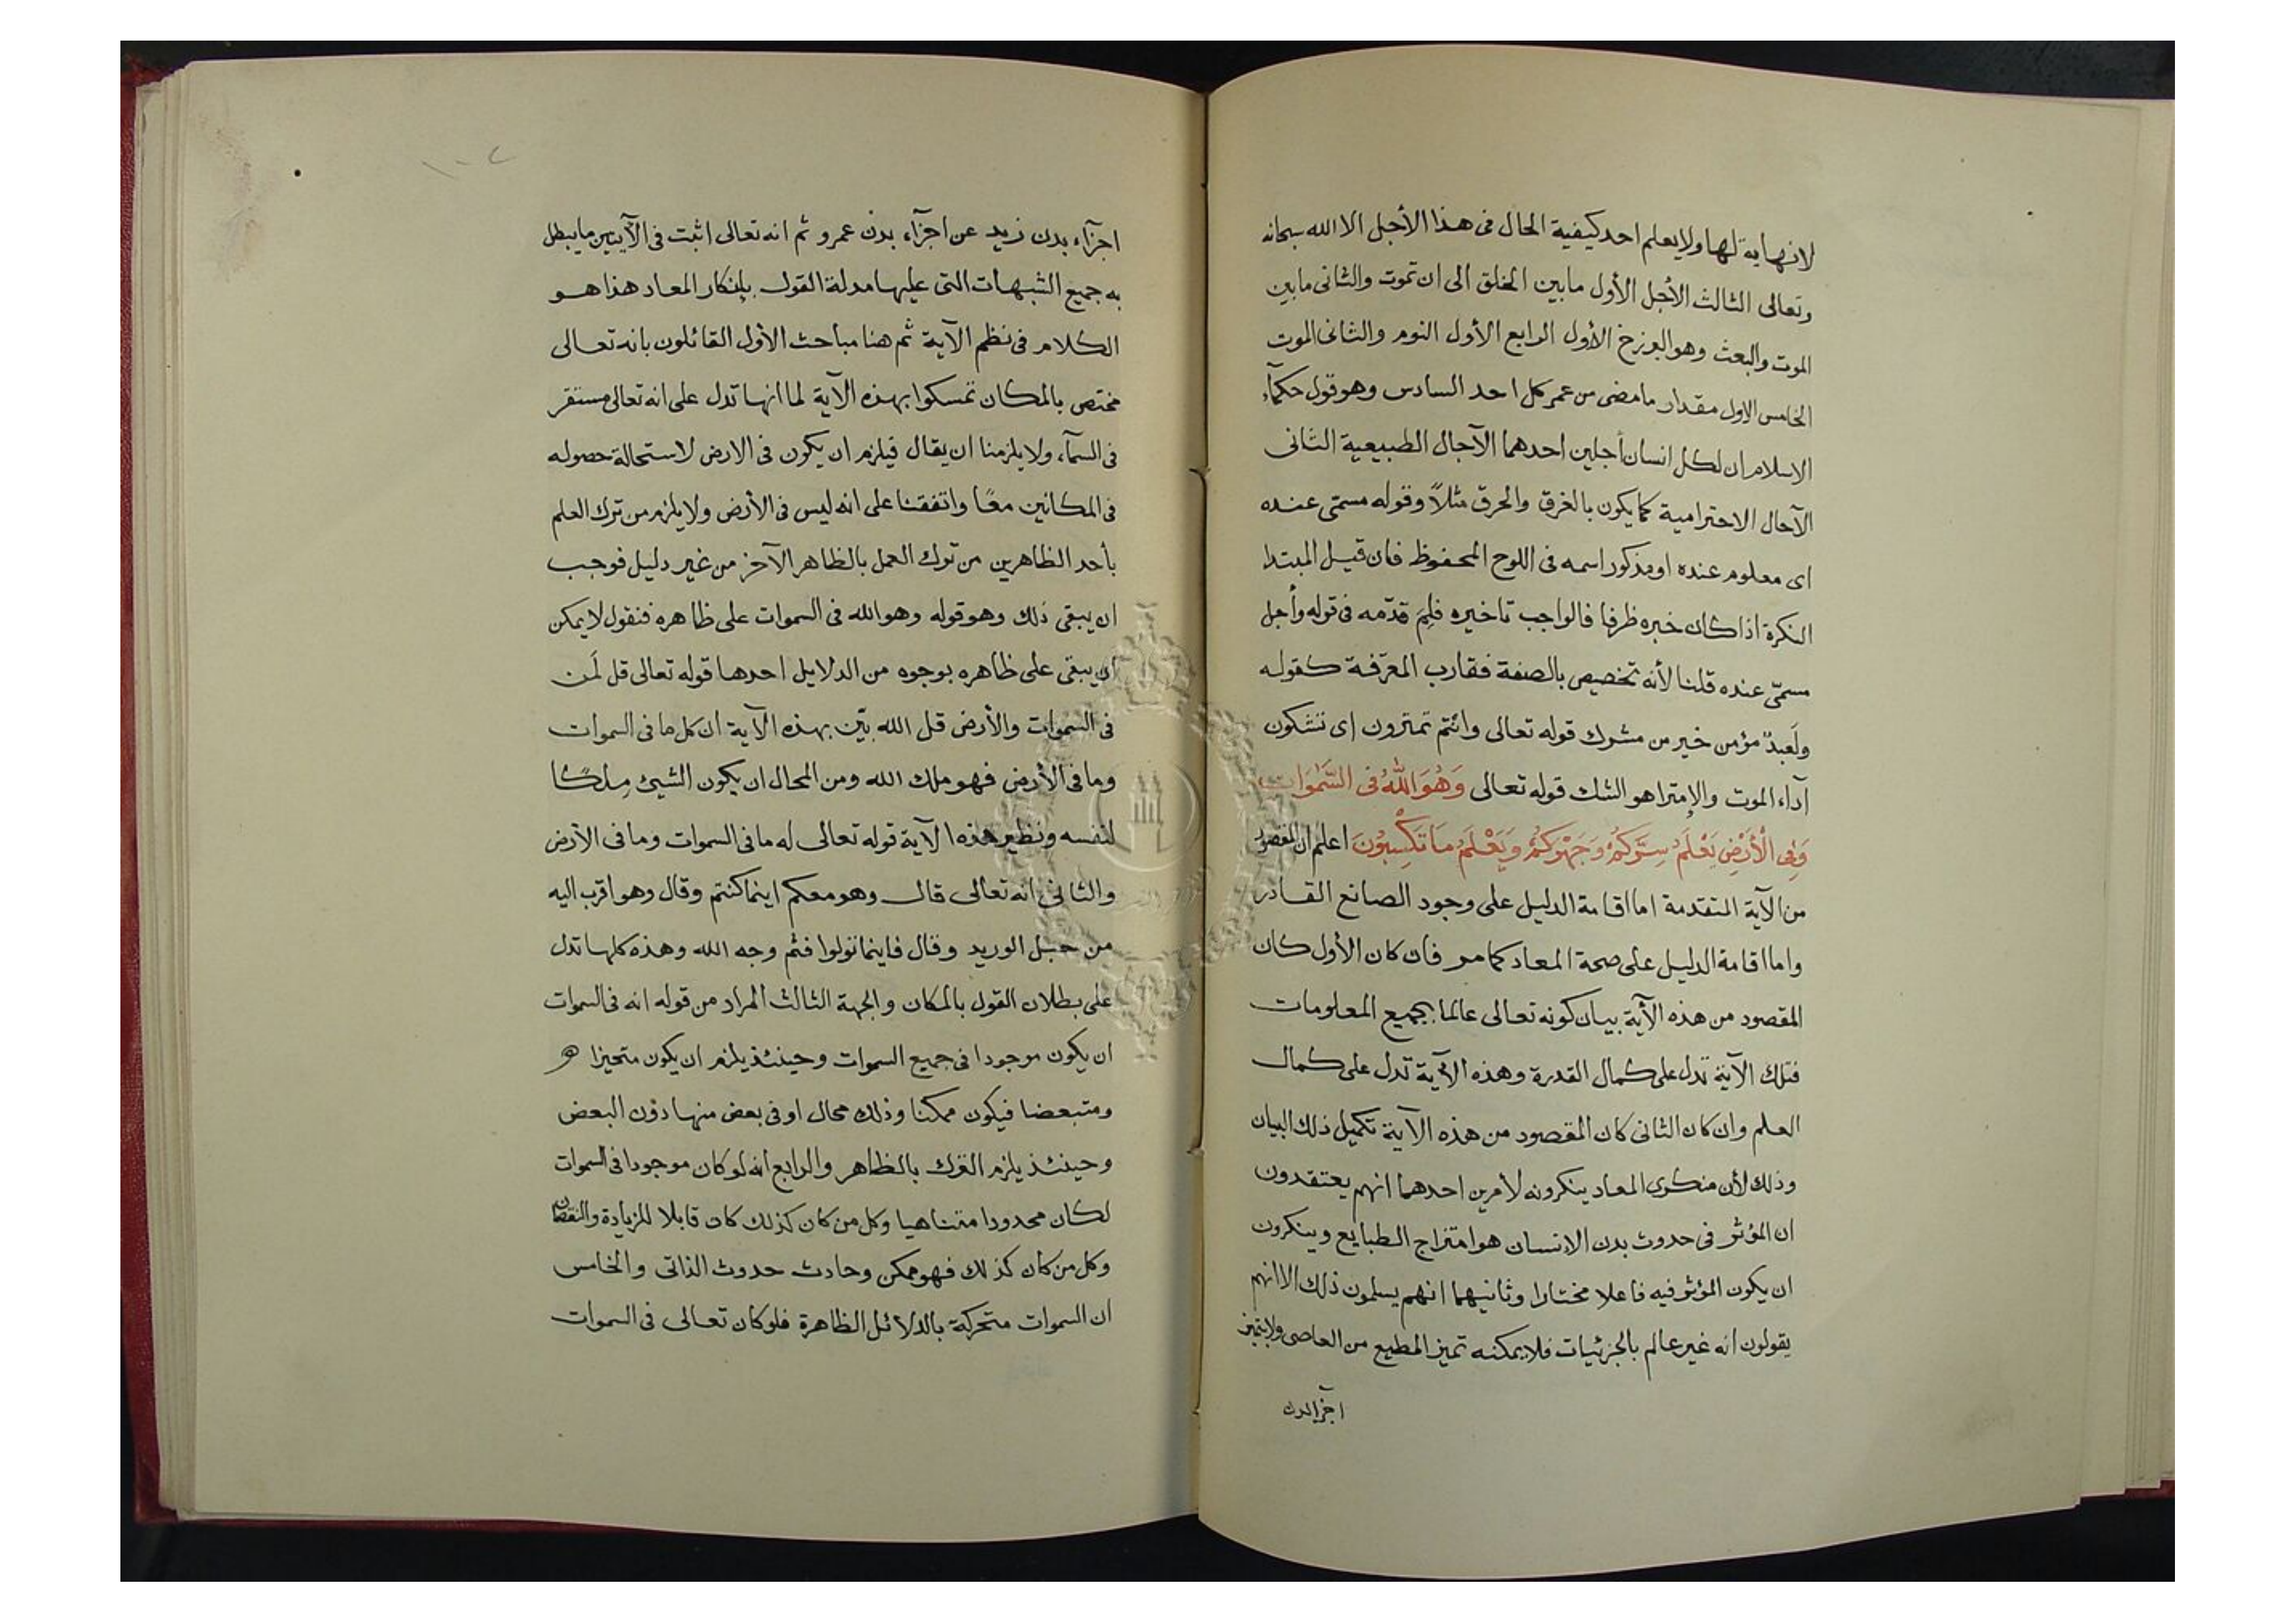 لانهاية لها ولا يعلم احد كيفية الحال فى هذا الأجل الا الله سبحانه
وتعالى الثالث الأجل الأول مابين الخلق الى ان تموت والثانى مابين
الموت والبعث وهو البرزخ الأول الرابع الأول النوم والثانى الموت
الخامس الاول مقدار مامضى من عمر كل احد السادس وهو قول حكمآء
الاسلام ان لكل انسان أجلين احدهما الآجال الطبيعية الثانى
الآجال الاخترامية كما يكون بالغرق والحرق مثلاً وقوله مسمّى عنده
اى معلوم عنده او مذكور اسمه فى اللوح المحفوظ فان قيل المبتدا
النكرة اذا كان خبره ظرفا فالواجب تاخيره فلِمَ قدّمه فى قوله وأجل
مسمّى عنده قلنا لأنه تخصيص بالصفة فقارب المعرّفة كقوله
ولَعبدٌ مؤمن خير من مشرك قوله تعالى وانتم تمترون اى تشكون
آداء الموت والإمترا هو الشك قوله تعالى وَهُوَ اللّٰهُ فِى السَّمٰوَاتِ
وَفِى الْأَرْضِ يَعْلَمُ سِرَّكُمْ وَجَهْرَكُمْ وَيَعْلَمُ مَا تَكْسِبُونَ اعلم ان المقصود
من الآية المتقدمة اما اقامة الدليل على وجود الصانع القادر
واما اقامة الدليل على صحة المعاد كما مر فان كان الأول كان
المقصود من هذه الآية بيان كونه تعالى عالما بجميع المعلومات
فتلك الآية تدل على كمال القدرة وهذه الآية تدل على كمال
العلم وان كان الثانى كان المقصود من هذه الآية تكميل ذلك البيان
وذلك لأن منكرى المعاد ينكرونه لأمرين احدهما انهم يعتقدون
ان المؤثر فى حدوث بدن الإنسان هو امتزاج الطبايع وينكرون
ان يكون المؤثر فيه فاعلا مختارا وثانيهما انهم يسلمون ذلك الا انهم
يقولون انه غير عالم بالجزئيات فلا يمكنه تميز المطيع من العاصى ولا يتميز
١٠٢
اجزآء بدن زيد عن اجزآء بدن عمرو ثم انه تعالى اثبت فى الآيتين ما يبطل
به جميع الشبهات التى عليها مدلة القول بإنكار المعاد هذا هو
الكلام فى نظم الآية ثم هنا مباحث الأول القائلون بانه تعالى
مختص بالمكان تمسكوا بهذه الآية لما انها تدل على انه تعالى مستقر
فى السمآء ولا يلزمنا ان يقال فيلزم ان يكون فى الارض لاستحالة حصوله
فى المكانين معًا واتفقنا على انه ليس فى الأرض ولا يلزم من ترك العلم
بأحد الظاهرين من توك العمل بالظاهر الآخر من غير دليل فوجب
ان يبقى ذلك وهو قوله وهو الله فى السموات على ظاهره فنقول لا يمكن
ان يبقى على ظاهره بوجوه من الدلايل احدها قوله تعالى قل لَمن
فى السموات والأرض قل الله بيّن بهذه الآية ان كل ما فى السموات
وما فى الأرض فهو ملك الله ومن المحال ان يكون الشيئ مِلكًا
لنفسه ونظير هذه الآية قوله تعالى له ما فى السموات وما فى الأرض
والثانى انه تعالى قال وهو معكم اينما كنتم وقال وهو اقرب اليه
من حبل الوريد وقال فاينما تولوا فثم وجه الله وهذه كلها تدل
على بطلان القول بالمكان والجهة الثالث المراد من قوله انه فى السموات
ان يكون موجودا فى جميع السموات وحينئذ يلزم ان يكون متحيزا
ومتبعضا فيكون ممكنا وذلك محال او فى بعض منها دون البعض
وحينئذ يلزم الترك بالظاهر والرابع انه لو كان موجودا فى السموات
لكان محدودا متناهيا وكل من كان كذلك كان قابلا للزيادة والنقصان
وكل من كان كذلك فهو ممكن وحادث حدوث الذاتى والخامس
ان السموات متحركة بالدلائل الظاهرة فلو كان تعالى فى السموات